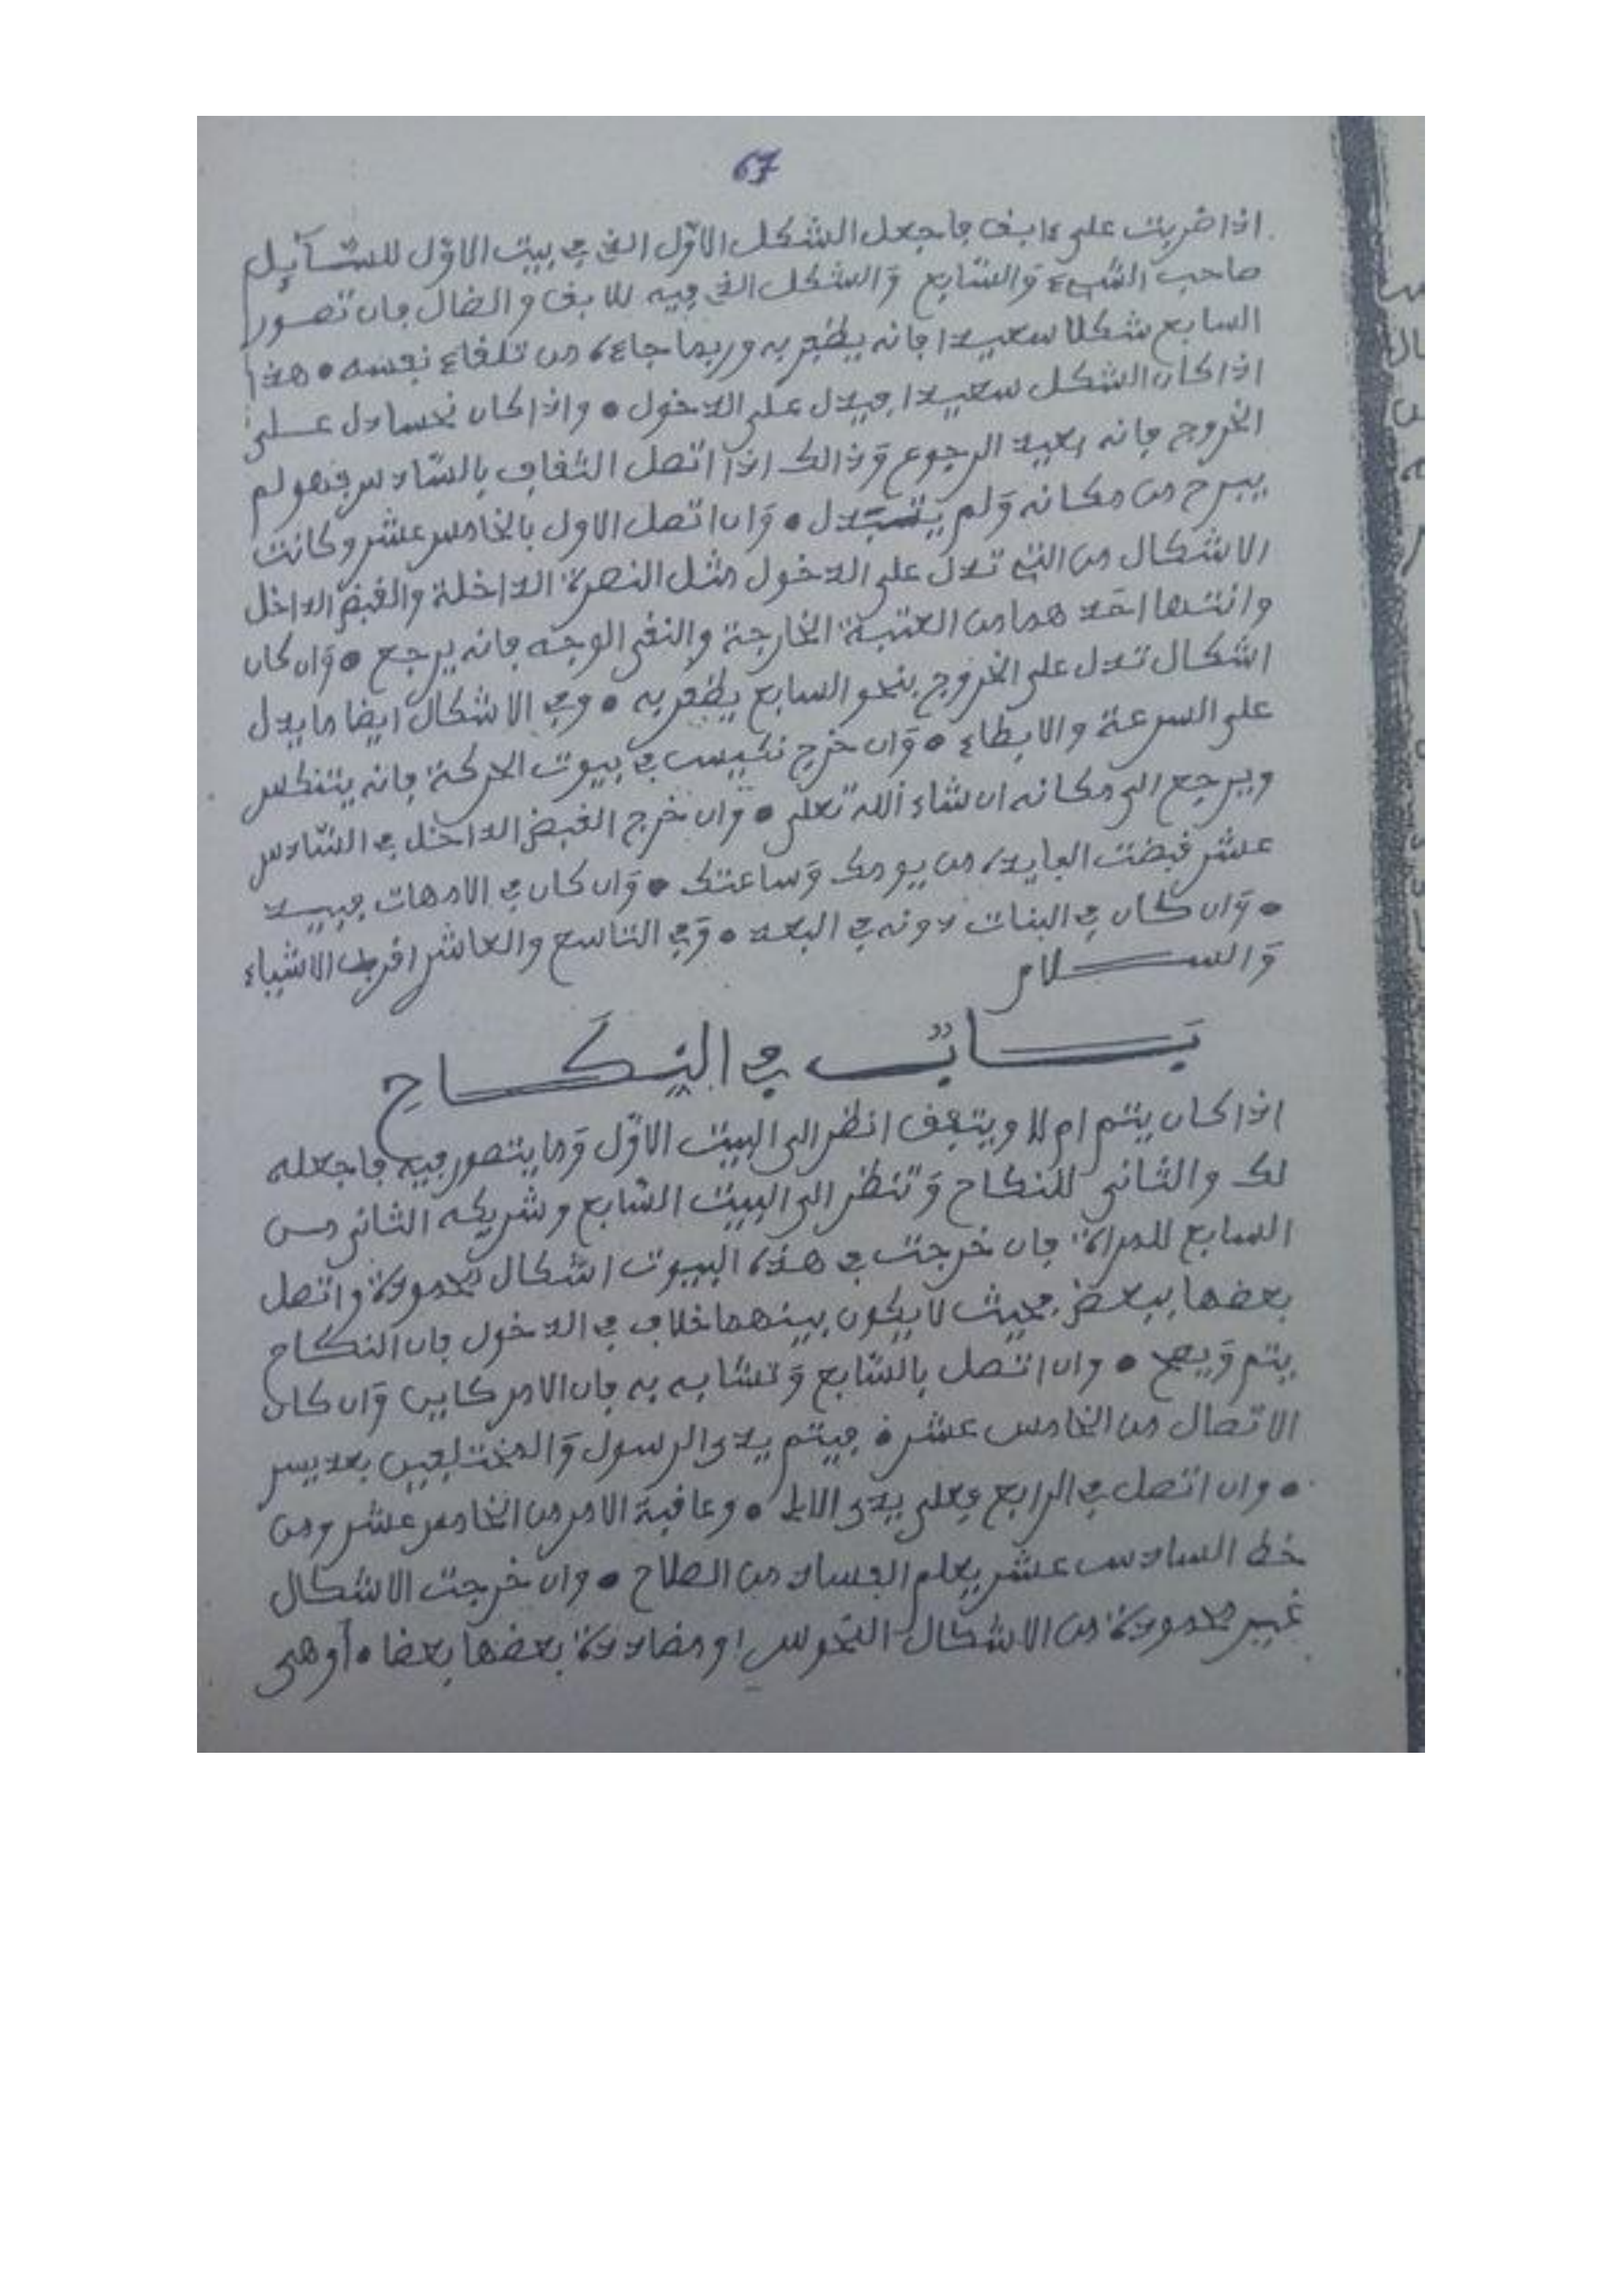 67
اذا ضربت على ءابق فاجعل الشكل الاوّل الذي في بيت الاوّل للسّآئِل
صاحب الشيء وَالسّابع وَالشكل الذي فيه للابق والضال فان تصور
السابع شكلا سعيدا فانه يظفر به وربما جاءه من تلقاء نفسه • هذا
اذا كان الشكل سعيدا فيدل على الدخول • واذا كان نحسا دل على
الخروج فانه بعيد الرجوع وَذالك اذا اتصل الثقاف بالسّادس فهو لم
يبرح من مكانه وَلم • وَان اتصل الاول بالخامس عشر وكانت
الاشكال من التي تدل على الدخول مثل النصرة الداخلة والقبض الداخل
احَدهما من العتبة الخارجة والنقي الوجه فانه يرجع • وَان كان
اشكال تدل على الخروج بنحو السابع يظفر به • وفي الاشكال ايضا ما يدل
على السرعة والابطاء • وَان خرج نكيس في بيوت الحركة فانه يتنكس
ويرجع الى مكانه ان شاء الله تعلى • وَان خرج القبض الداخل في السّادس
عشر قبضت الفايده من يومك وَساعتك • وَان كان في الامهات
• وَان كان في البنات دونه في البعد • وَفي التاسع والعاشر اقرب الاشياء
وَالســـلام
بَـــابٌ في النِكَـــاحِ
اذا كان يتم ام لا ويتفق انظر الى البيت الاوّل وَما يتصور فيه فاجعله
لك والثاني للنكاح وَتنظر الى البيت السّابع وشريكه الثاني من
السابع للمراة فان خرجت في هذه البيوت اشكال محمودة واتصل
بعضها ببعض بحيث لا يكون بينهما خلاف في الدخول فان النكاح
يتم وَيصح • وان اتصل بالسّابع وَتشابه به فان الامر كاين وَان كان
الاتصال من الخامس عشر • فيتم يدى الرسول وَالمختلفين بعد يسر
• وان اتصل في الرابع فعلى يدى الاب • وعاقبة الامر من الخامس عشر ومن
خط السادس عشر يعلم الفساد من الصلاح • وان خرجت الاشكال
غير محمودة من الاشكال النحوس او مضاددة بعضها بعضا • أو هى